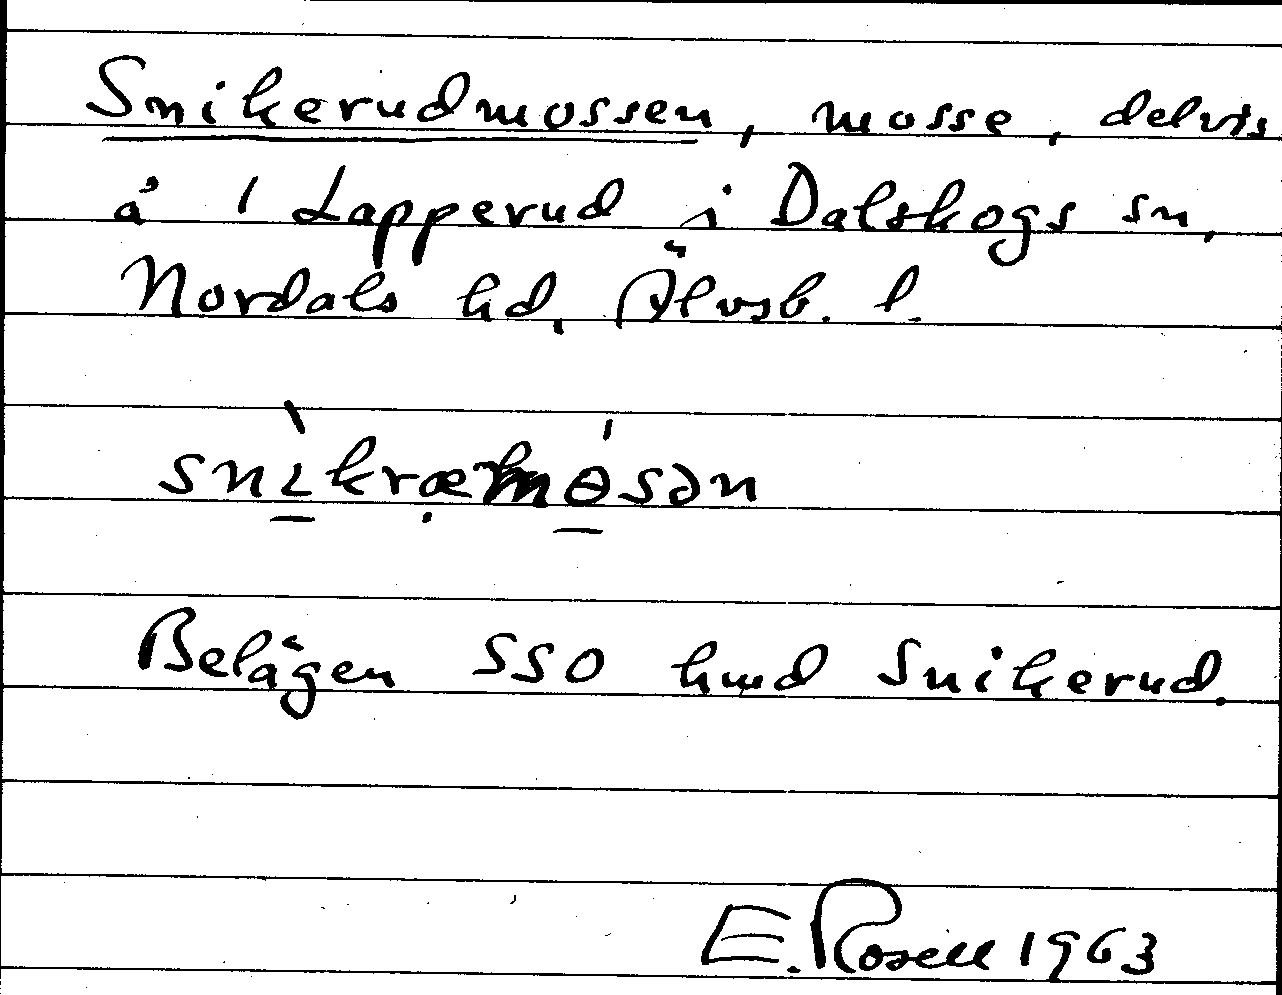 Snikerudmossen, mosse, delvis
å 1 Lapperud i Dalskogs sn,
Nordals hd, Älvsb. l.
Belägen SSO hmd Snikerud.
E. Rosell 1963